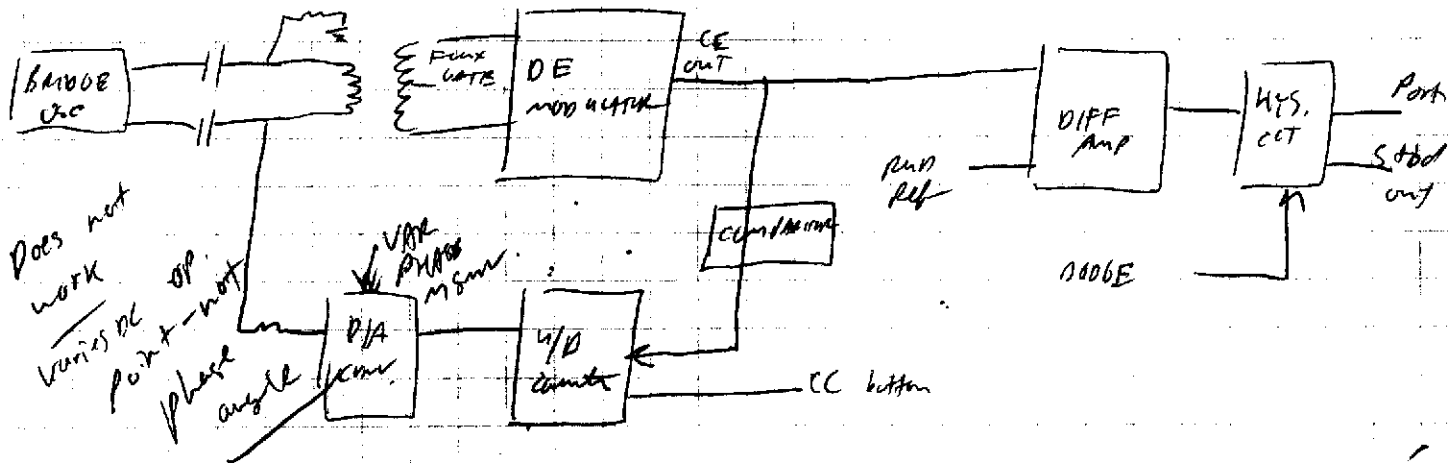 BRIDGE
osc
FLUX
GATE
DE
MODULATOR
CE
out
DIFF
AMP
HYS.
CCT
Port
Stbd
out
RUD
Ref
COMPARATOR
DODGE
Does not
work
varies DC op.
point - not
phase
angle
VAR
PHASE
D/A
conv.
U/D
Counter
CC button